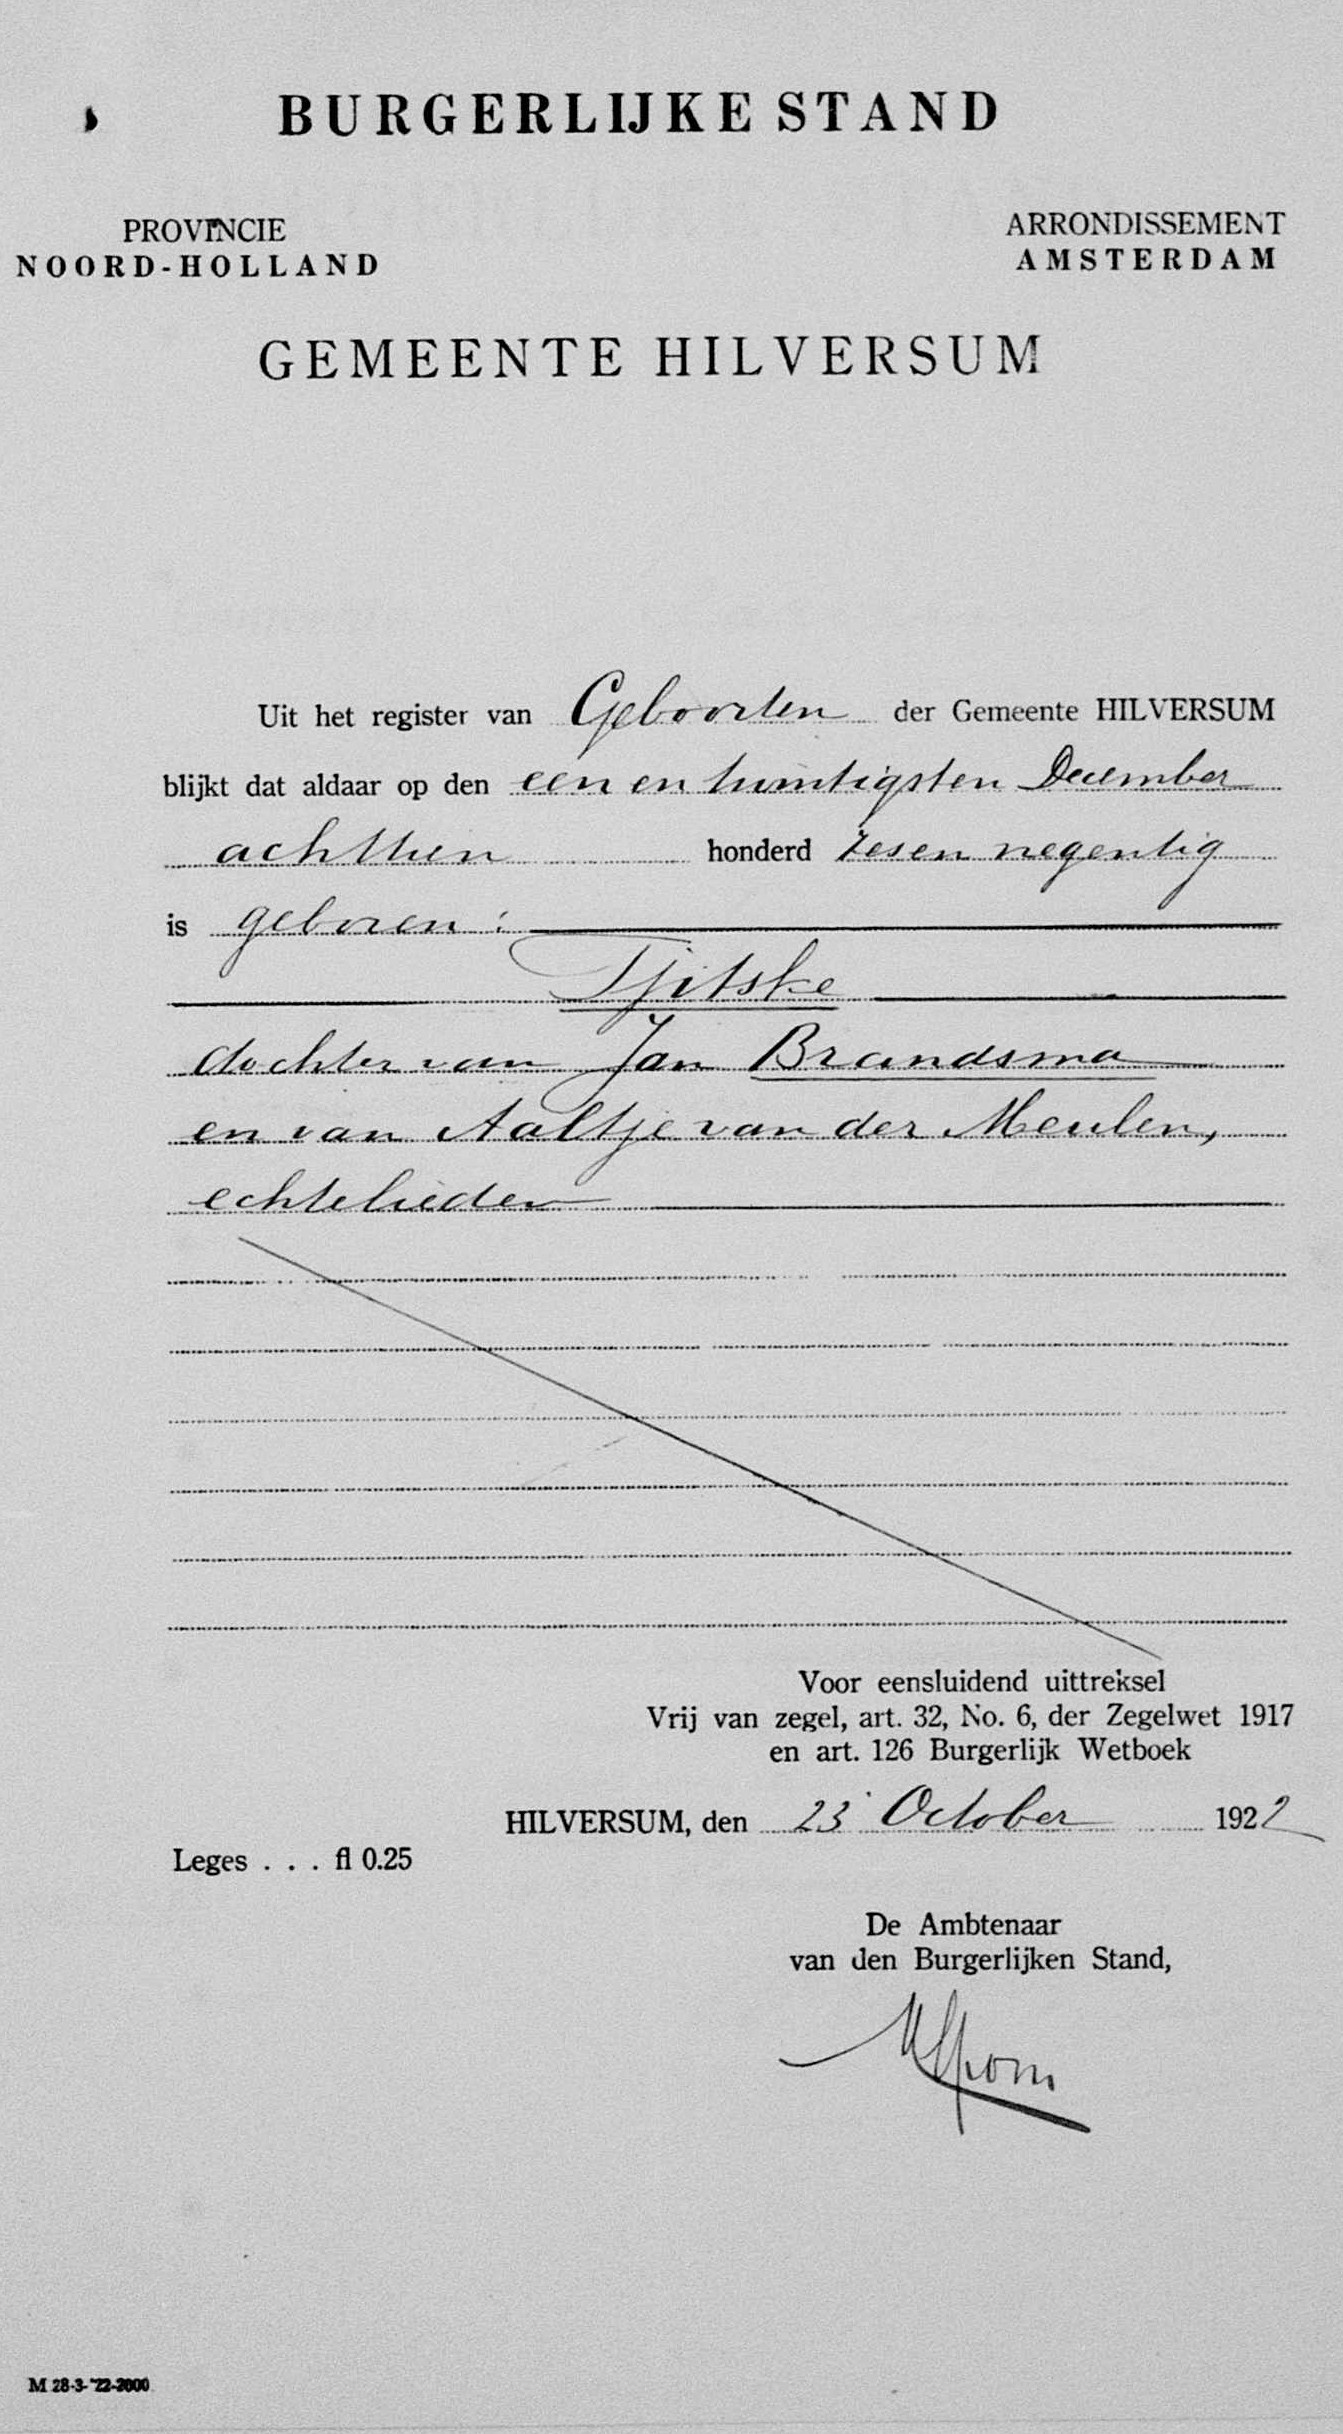 BURGERLIJKE STAND
PROVINCIE
NOORD-HOLLAND
ARRONDISSEMENT
AMSTERDAM
GEMEENTE HILVERSUM
Uit het register van Geboorten der Gemeente HILVERSUM
blijkt dat aldaar op den een en twintigsten December
achttien honderd zesen negentig
is geboren:
Tjitske
dochter van Jan Brandsma
en van Aaltje van der Meulen,
echtelieden
Voor eensluidend uittreksel
Vrij van zegel, art. 32, No. 6, der Zegelwet 1917
en art. 126 Burgerlijk Wetboek
HILVERSUM, den 23 October 1922
Leges . . . fl 0.25
De Ambtenaar
van den Burgerlijken Stand,
M 28-3-'22-2000